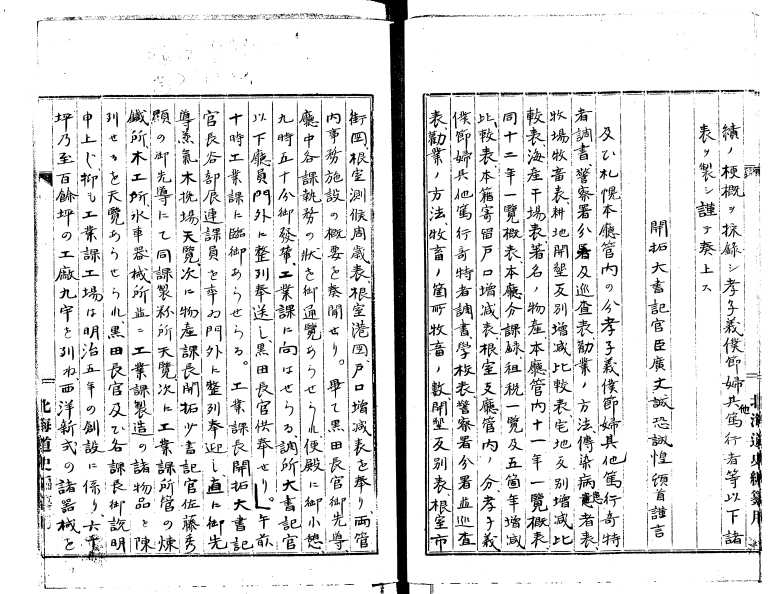 績ノ梗概ヲ採録シ孝子義僕節婦其他篤行者等以下諸
表ヲ製シ謹テ奏上ス
開拓大書記官臣廣丈誠恐誠惶頓首謹言
及ひ札幌本廳管内の分孝子義僕節婦其他篤行奇特
者調書、警察署分署及巡査表勧業ノ方法傳染病患者表
牧場牧畜表耕地開墾反別増減比較表宅地反別増減比
較表、海産干場表著名ノ物産本廳管内十一年一覽概表
同十二年一覽概表本廳分課録租税一覽及五箇年増減
比較表本籍寄留戸口増減表根室支廳管内ノ分孝子義
僕節婦其他篤行奇特者調書学校表警察署分署並巡査
表勧業ノ方法牧畜ノ箇所牧畜ノ數開墾反別表、根室市
街図、根室測候周歳表根室港図戸口増減表を奉り両管
内事務施設の概要を奏聞せり。畢て黒田長官御先導
廳中各課執務の状を御通覽あらせられ便殿に御小憩
九時五十分御發輦、工業課に向はせらる調所大書記官
以下廳員門外に整列奉送し黒田長官供奉せり。午前
十時工業課に臨御あらせらる。工業課長開拓大書記
官長谷部辰連課員を率ゐ門外に整列奉迎し直に御先
導蒸氣木挽場天覽次に物産課長開拓少書記官佐藤秀
顯の御先導にて同課製粉所天覽次に工業課所管の煉
鐵所木工所水車器械所並に工業課製造の諸物品を陳
列せるを天覽あらせられ黒田長官及び各課長御説明
申上ぐ、抑も工業課工場は明治五年の創設に係り六十
坪乃至百餘坪の工廠九宇を列ね西洋新式の諸器械を
北海道史編纂用
北海道史編纂用